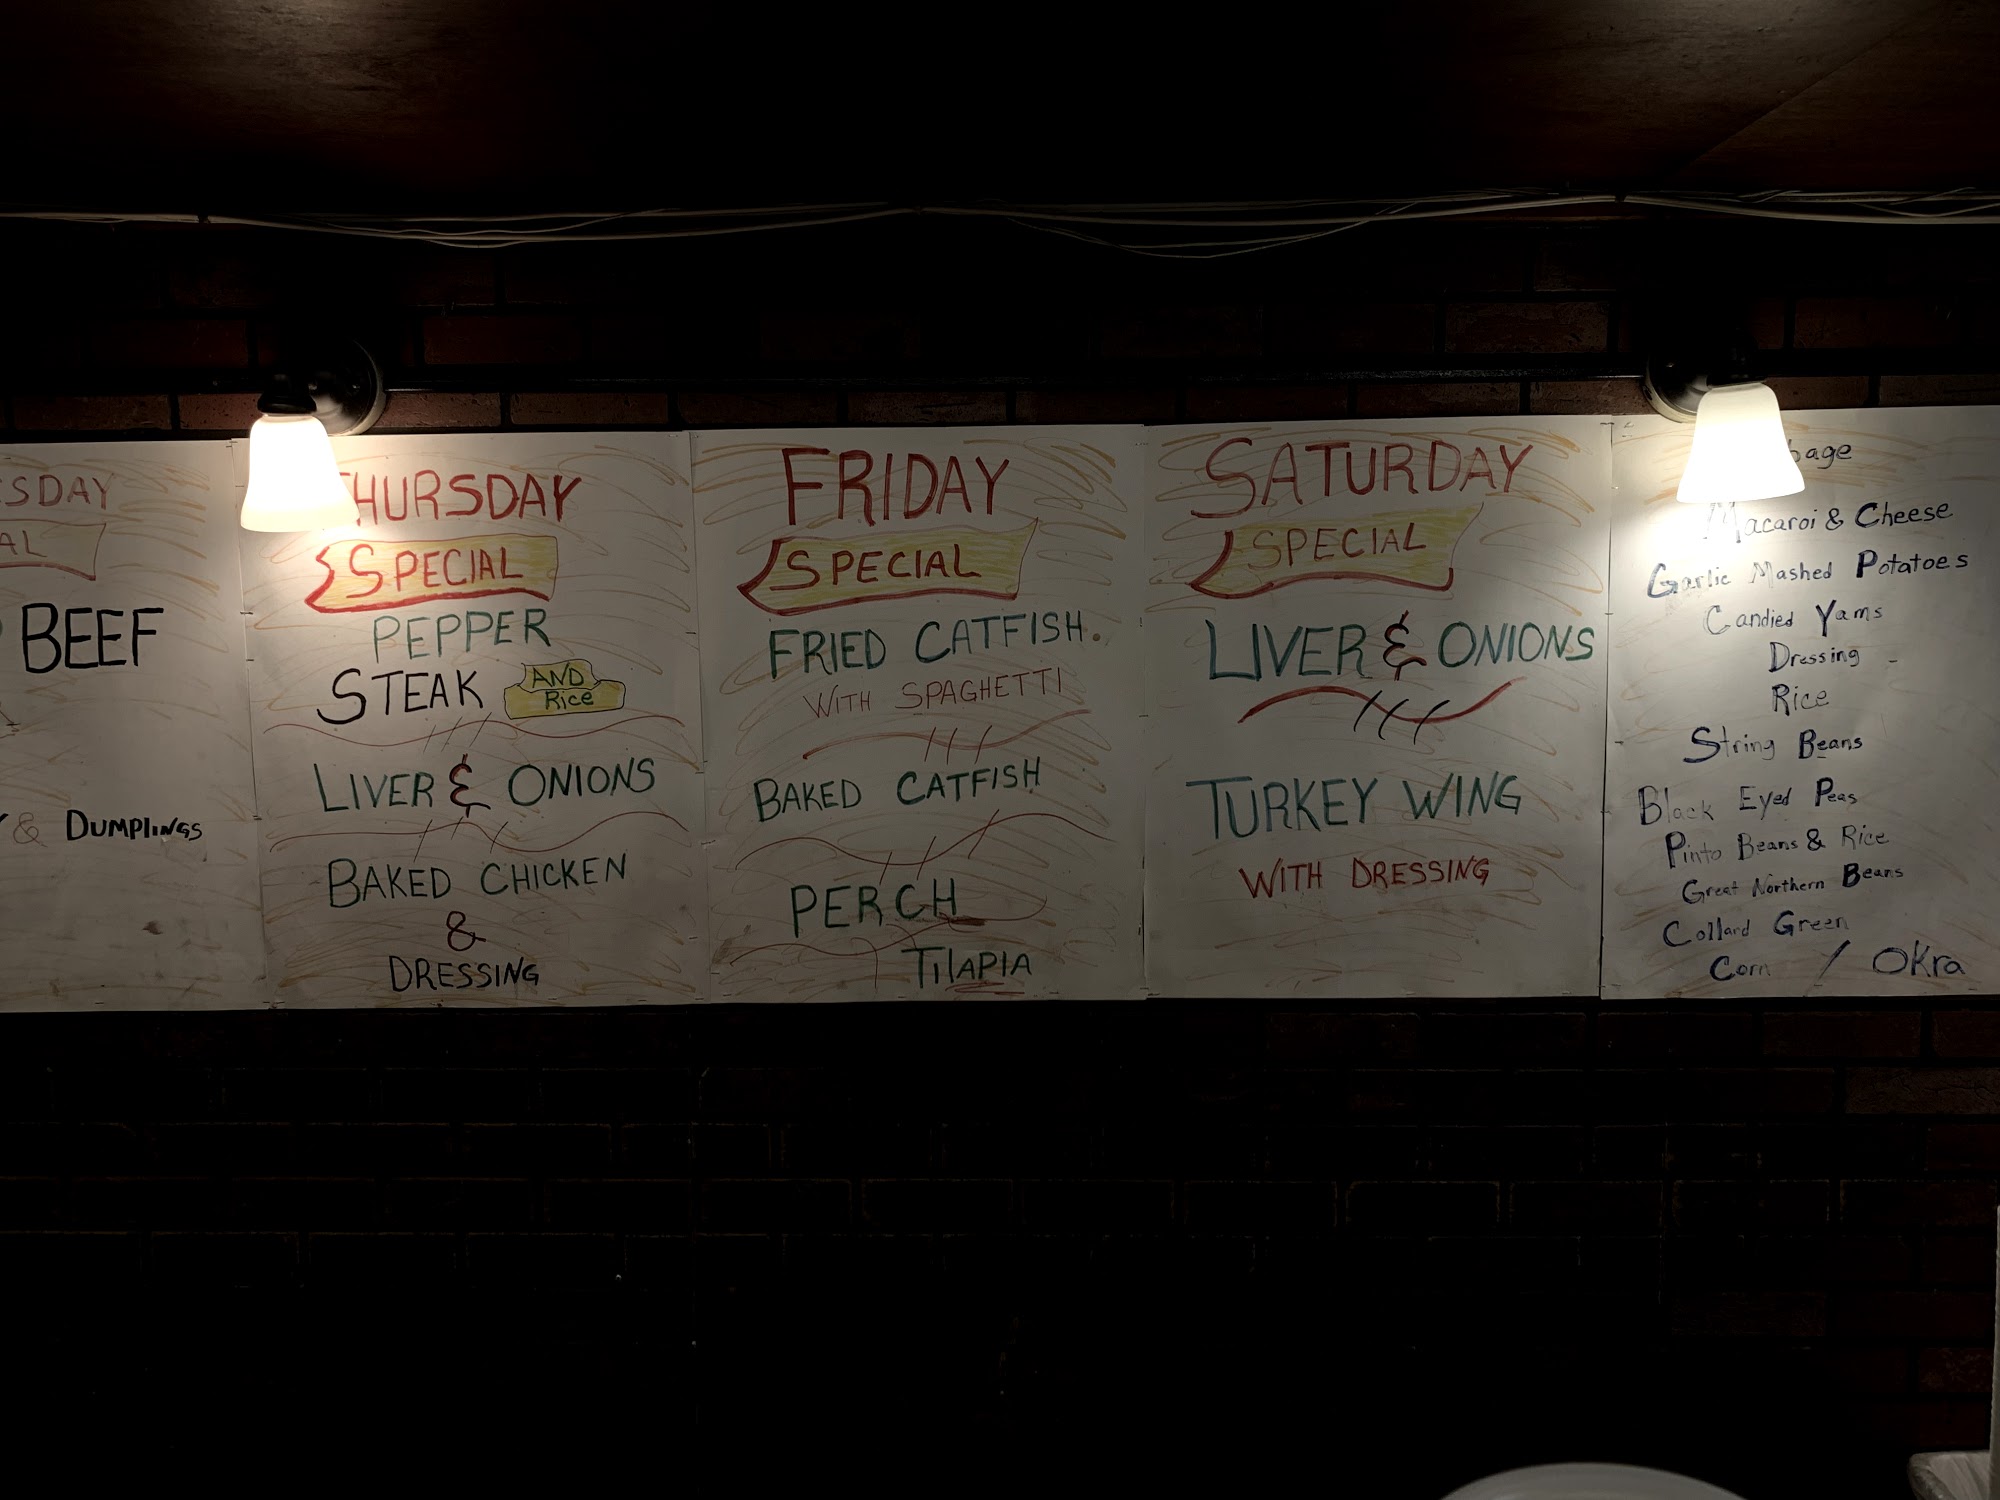 BEEF
& DUMPLINGS
THURSDAY
SPECIAL
PEPPER
STEAK AND Rice
LIVER & ONIONS
BAKED CHICKEN
&
DRESSING
FRIDAY
SPECIAL
FRIED CATFISH.
WITH SPAGHETTI
BAKED CATFISH
PERCH
TILAPIA
SATURDAY
SPECIAL
LIVER & ONIONS
TURKEY WING
WITH DRESSING
Macaroi & Cheese
Garlic Mashed Potatoes
Candied Yams
Dressing
Rice
String Beans
Black Eyed Peas
Pinto Beans & Rice
Great Northern Beans
Collard Green
Corn / Okra